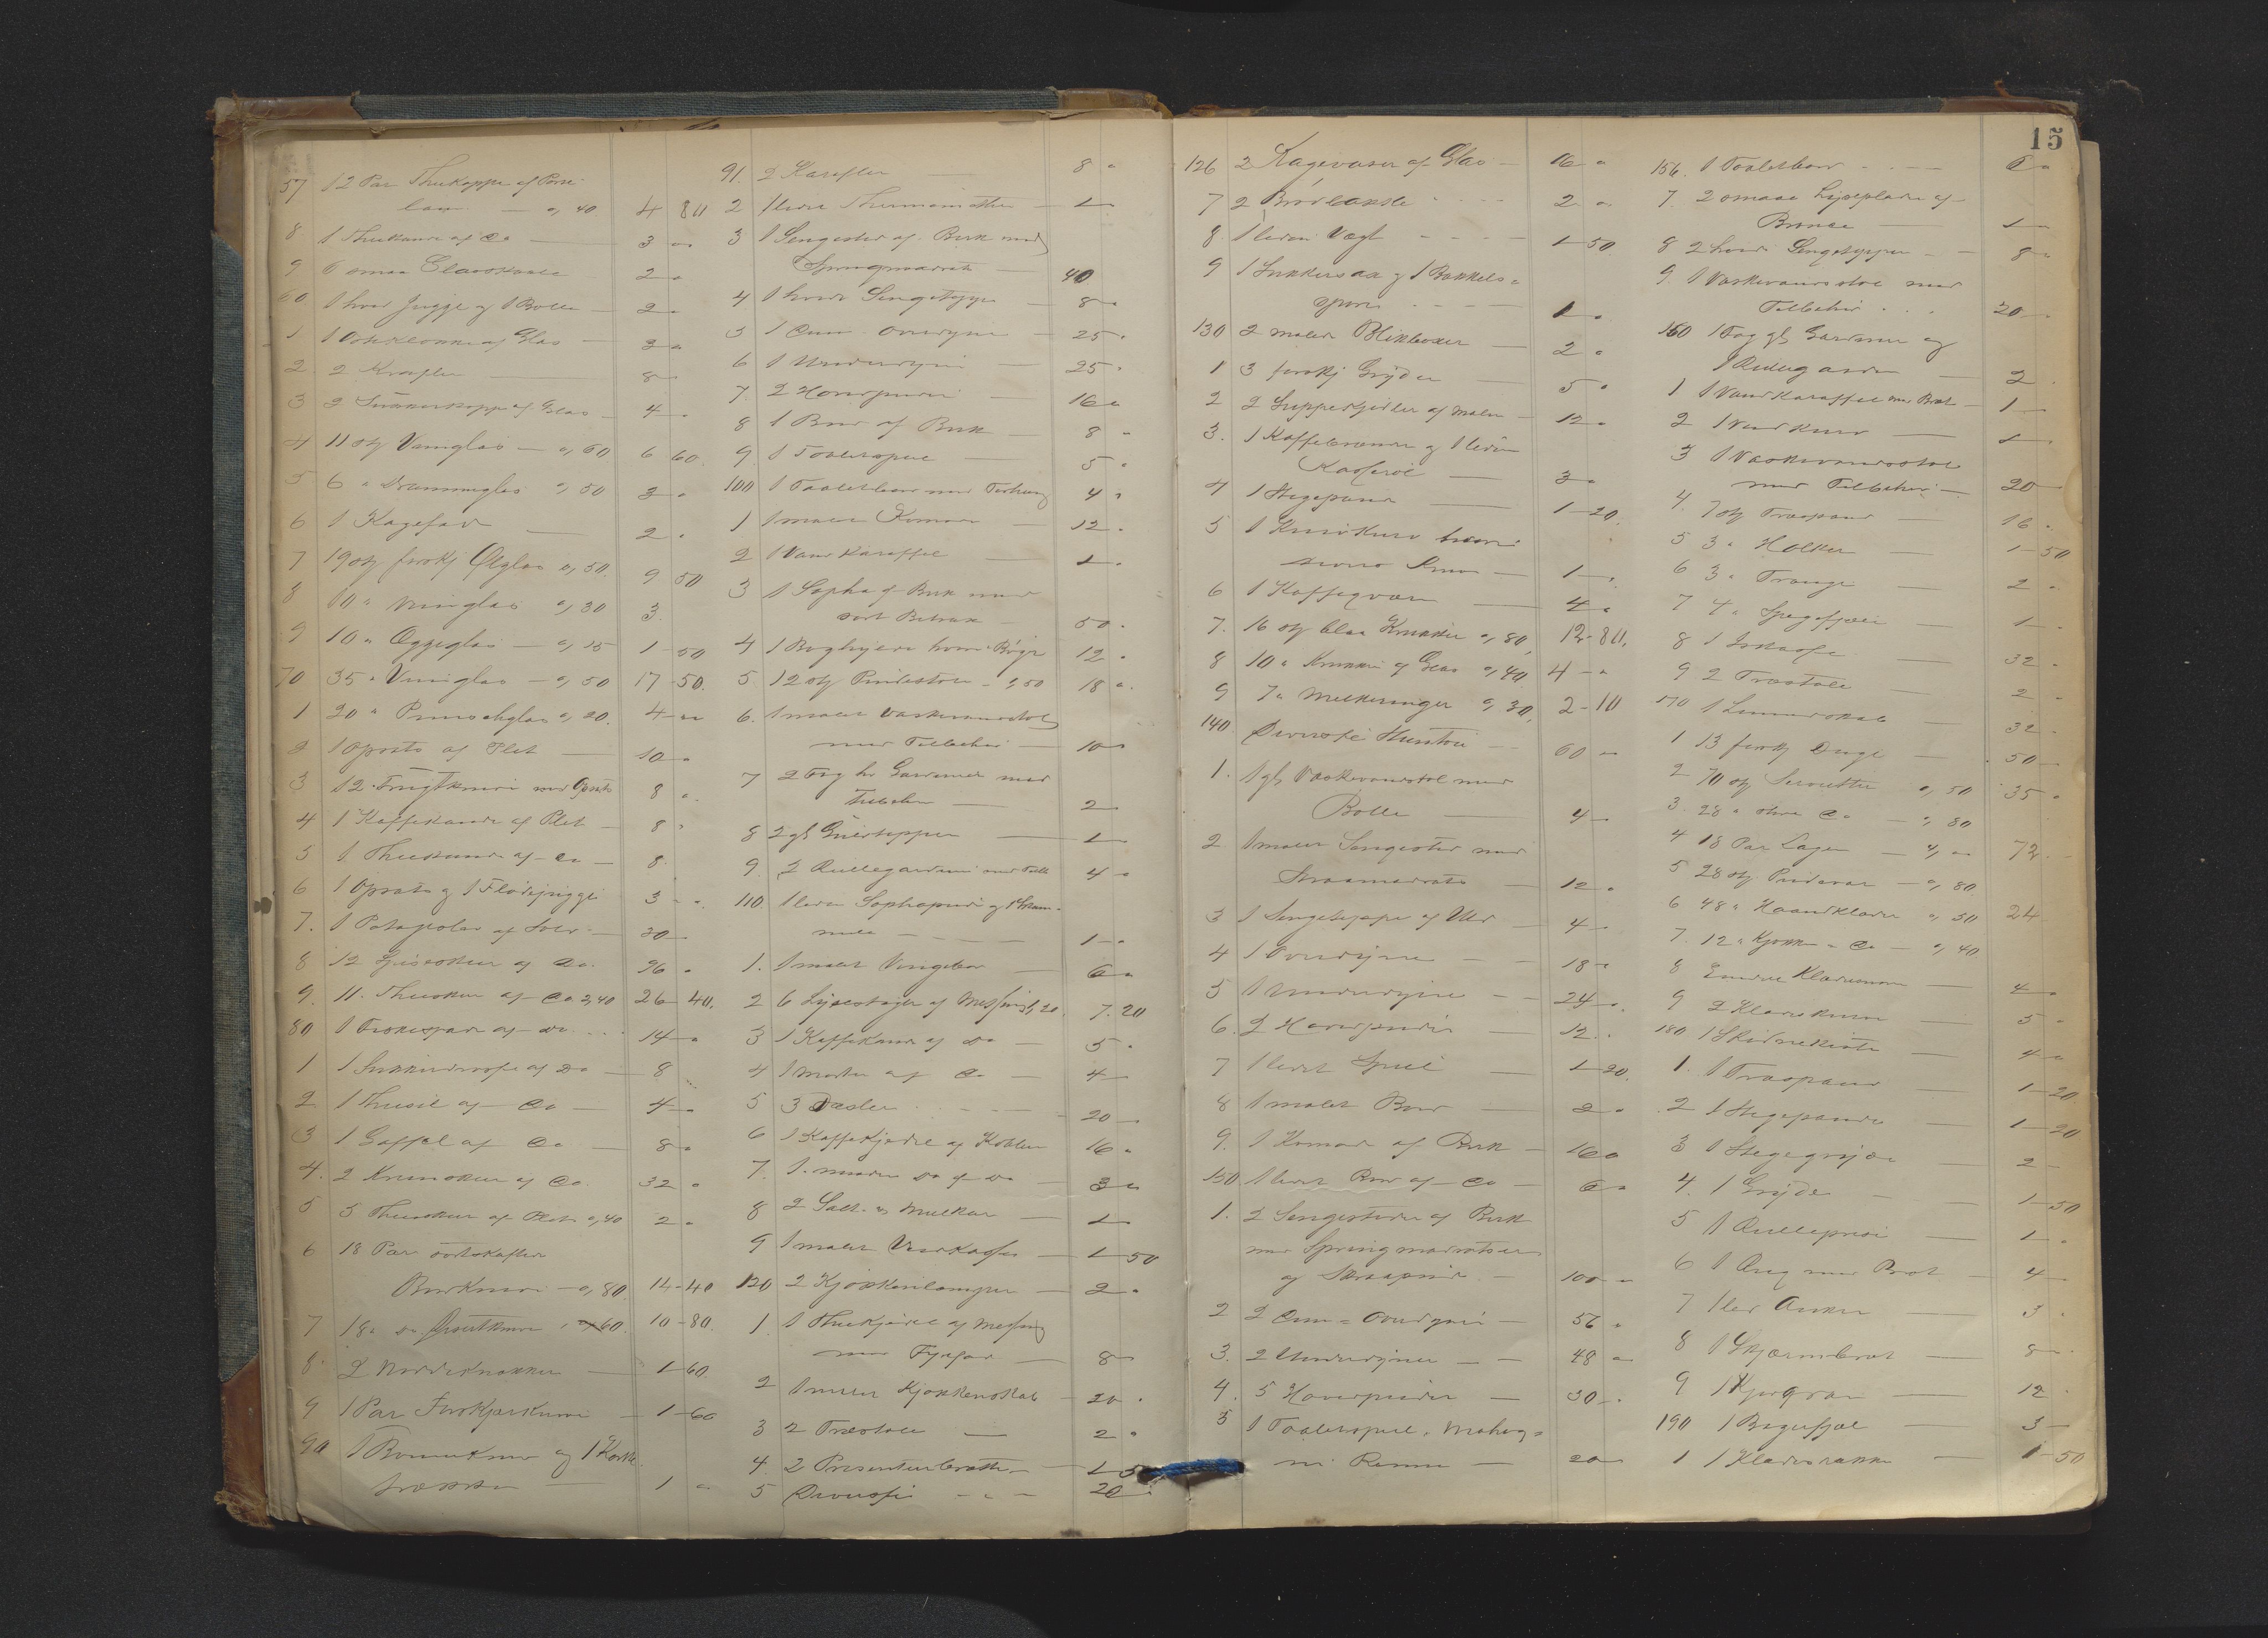 15
57 12 Par Theekopper af Porse-
lain — a, 40 4 80
8 1 Theekande af Do — 3 "
9 6 smaa Glasskaale 2 "
60 1 hvid Jugge og 1 Bolle — 2 "
1 1 Osteklokke af Glas — 2 "
2 2 Karafler — 8 "
3 2 Sukkerkopper af Glas — 4 "
4 11 stk Vinglas — a, 60 6 60
5 6 " Drammeglas a, 50 3 "
6 1 Kagefad — 2 "
7 19 stk forskj Ølglas a, 50 9 50
8 10 " Vinglas a, 30 3
9 10 " Æggeglas — a, 15 1-50
70 35 " Vinglas — a, 50 17-50
1 20 " Punschglas a, 20 4 "
2 1 Opsats af Plet — 10 "
3 12 Frugtknive med Opsats 8 "
4 1 Kaffekande af Plet — 8 "
5 1 Theekande af Do — 8
6 1 Opsats og 1 Flødejugge 3 "
7. 1 Potageske af Sølv — 30
8 12 Spiseskeer af Do. 96 "
9. 11 Theeskeer af Do 2,40 26-40
80 1 Fiskespade af Do 14 "
1 1 Sukkerdaase af Do — 8
2 1 Theesie af Do — 4
3 1 Gaffel af Do — 8 "
4. 2 Kremskeer af Do. 32 "
5 5 Theeskeer af Plet a, 40 2 "
6 18 Par sortskaftede
Bordknive — a, 80 14-40
7 18 " Do Desertknive a, 60 10-80
8 2 Nøddeknækker — 1-60
9 1 Par Forskjærknive — 1-60
90 1 Brændekniv og 1 Korke-
trækker — 1 "
91. 2 Karafler — 8 "
2 1 lidet Thermometer — 1
3 1 Sengested af Birk med
Springmadrats — 40
4 1 hvidt Sengetæppe — 8
5 1 Duns Overdyne — 25 "
6 1 Underdyne — 25 "
7. 2 Hovedpuder — 16 "
8 1 Bord af Birk — 8 "
9. 1 Toiletspeil — 5 "
100 1 Toiletbord med Forhæng 4 "
1 1 malet Komode — 12 "
2 1 Vandkaraffel — 1
3 1 Sopha af Birk med
sort Betræk — 50 "
4 1 Boghylde hvori Bøger 12 "
5 12 stk Pindestole a 1,50 18 "
6. 1 malet Vaskevandstol
med Tilbehør — 10
7 2 Fag hv Gardiner med
Tilbehør — 2
8 2 gl Gulvtepper — 1
9. 2 Rullegardiner med Tilb 4 "
110 1 liden Sophapude og 1 Skam-
mel — 1 "
1. 1 malet Vingebord — 6 "
2 6 Lysestager af Messing 1,20 7.20
3 1 Kaffekande af Do — 5 "
4 1 Morter af Do — 4
5 3 Døsler — 20
6 1 Kaffekjedel af Kobber 16 "
7. 1 mindre Do af Do — 3 "
8 2 Salt- og Melkar — 1
9 1 malet Vedkasse — 1 50
120 2 Kjøkkenlamper — 2 "
1 1 Theekjedel af Messing
med Fyrfad — 8
2 1 malet Kjøkkenskab — 20 "
3 2 Træstole — 2 "
4. 2 Presenteerbrætter — 1 5
5 Diverse — 20
126 2 Kagevaser af Glas — 16 "
7 2 Brødbakke — 2 "
8. 1 liden Vægt — 1-50
9 1 Sukkersax og 1 Bakkels-
spore — 1 "
130 2 malede Blikboxer — 2 "
1 3 forskj Gryder — 5 "
2 2 Suppekjedler af Malm — 12 "
3. 1 Kaffebrænder og 1 liden
Kasserol — 3 "
4 1 Stegepande — 1-20
5 1 Knivkurv hvori
Knive — 1
6 1 Kaffeqværn — 4 "
7. 16 stk blaa Krukker a, 80 12-80
8 10 " Krukker af Glas a, 40 4 "
9 7 " Melkeringer a, 30 2-10
140. Diverse Stentøi — 60
1. 1 gl Vaskevandstol med
Bolle — 4
2 1 malet Sengested med
Straamadrats — 12 "
3 1 Sengetæppe af Uld — 4 "
4 1 Overdyne — 18 "
5 1 Underdyne — 24 "
6. 2 Hovedpuder — 12
7 1 lidet Speil — 1-20
8 1 malet Bord — 2 "
9. 1 Komode af Birk — 16 "
150 1 lidet Bord af Do — 6 "
1. 2 Sengesteder af Birk
med Springmadratser
og Skraapude — 100
2 2 Duns-Overdyner — 56 "
3. 2 Underdyner — 48
4. 5 Hovedpuder — 30
5 1 Toiletspeil, Mahog-
ni Ramme — 20
156. 1 Toiletbord — 6 "
7. 2 smaa Lyseplader af
Bronce — 1
8 2 hvide Sengetepper — 8 "
9. 1 Vaskevandsstol med
Tilbehør — 20
160 1 Fag gl Gardiner og
1 Rullegardin — 2
1 1 Vandkaraffel med Bræt — 1
2 1 Vedkurv — 1
3 1 Vaskevandsstol
med Tilbehør — 20
4. 7 stk Træspand — 16 "
5 3 " Holker — 1-50
6 3 " Trauge — 2 "
7 4 " Spegefjæle — 1
8 1 Iskasse — 32
9 2 Træstole — 2
170 1 Linnedskab — 32
1 13 forskj Duge — 50
2 70 stk Servietter a, 50 35 "
3. 28 " Do — a, 80
4 18 Par Lagen — 4, " 72
5 28 stk Pudevar — a, 80
6 48 " Haandklæder a, 50 24
7. 12 " Kjøkken- Do — a, 40
8 Endel Klæder — 4
9 2 Klædeskurve — 5 "
180 1 Skidnekiste — 4 "
1. 1 Træspand — 1-20
2 1 Stegepande — 1-20
3 1 Stegegryde — 2
4. 1 Gryde — 1-50
5 1 Rullepresse — 1 "
6 1 Deig med Bræt — 4
7 1 led Anker — 3
8 1 Skjærmbræt — 8
9 1 Kjødqværn — 12
190 1 Bagefjæl — 3
1 1 Klædesrække — 1-50